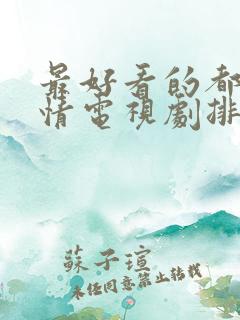 最好看的都
情電視劇排
蘇子瑄
未经同意禁止转载